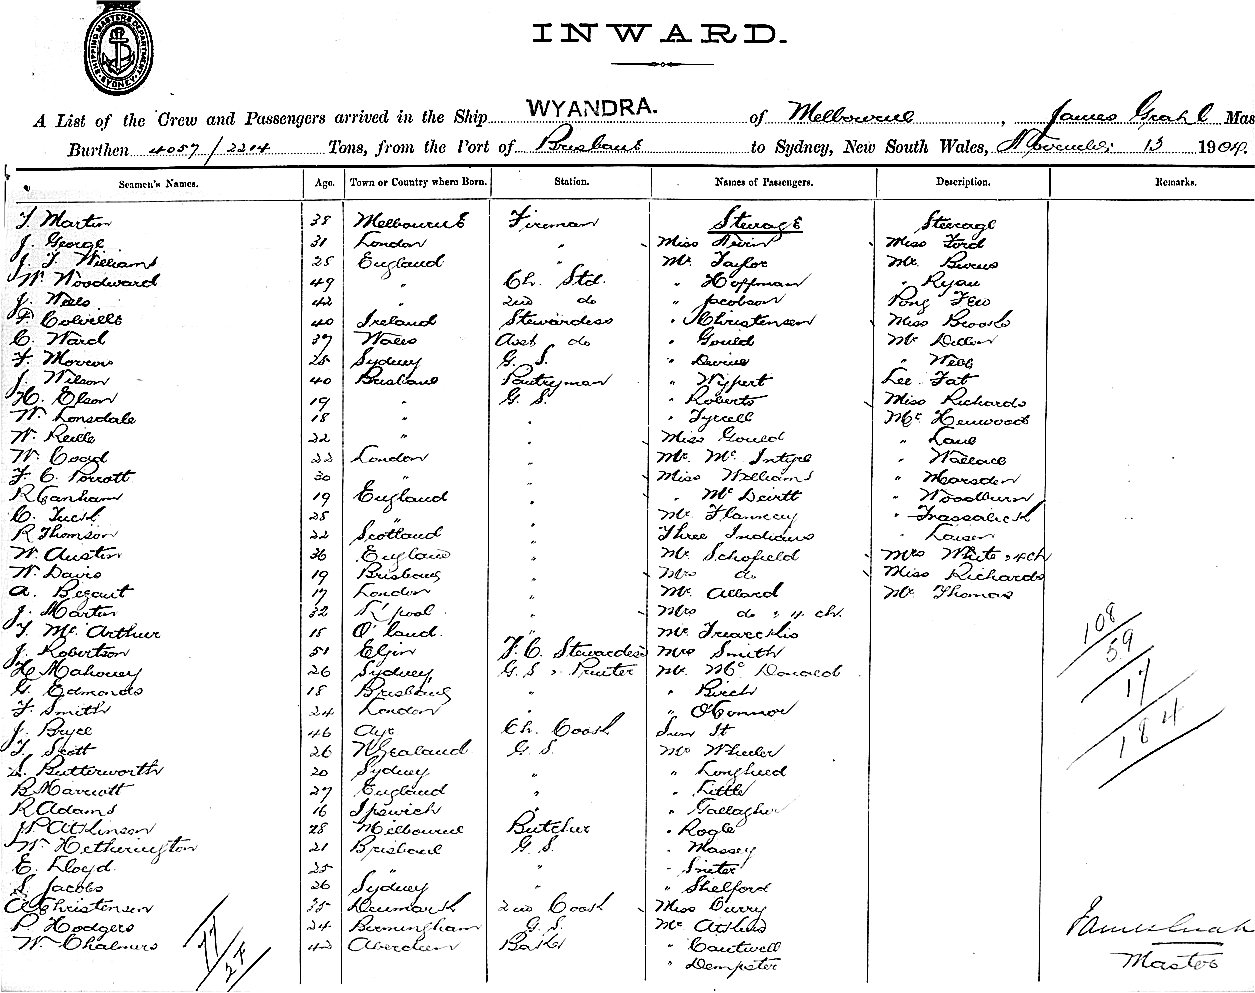 SHIPPING MASTER'S DEPARTMENT SYDNEY
INWARD.
A List of the Crew and Passengers arrived in the Ship WYANDRA. of Melbourne, James Grahl Mas
Burthen 4057/2204 Tons, from the Port of Brisbane to Sydney, New South Wales, November 13 1904.
Seamen's Names. Age. Town or Country where Born. Station. Names of Passengers. Description. Remarks.
T. Martin 38 Melbourne Fireman Steerage Steerage
J. George 31 London " Miss Miss Ford
J. T. Williams 25 England " Mr Taylor Mr Burns
W. Woodward 49 " Ch. Std. " Hoffman " Ryan
J. Wales 42 " 2nd do " Jacobson Pong Few
P. Colville 40 Ireland Stewardess " Christensen Miss Brooks
C. Ward 37 Wales Asst do " Gould Mr Dillon
F. 25 Sydney G. S. " Devine " Webb
J. Wilson 40 Brisbane Pantryman " Wypert Lee Fat
H. Olson 19 " G. S. " Roberts Miss Richards
W. Lonsdale 18 " " " Tyrell Mr Henwood
W. 22 " " Miss Gould " Lane
W. Coad 22 London " Mr McIntyre " Wallace
F. C. Porrott 30 " " Miss Williams " Marsden
R Canham 19 England " " " Woodburn
C. Tuck 25 " " Mr Flannery "
R Thomson 22 Scotland " Three Indians " Larsen
W. Austin 36 England " Mr Schofield Mrs White & 4ch
W. Davis 19 Brisbane " Mrs do Miss Richards
A. 17 London " Mr Allard Mr Thomas
J. Martin 32 L'pool " Mrs do & 4 ch.
T. McArthur 15 Q'land " Mr
J. Robertson 51 Elgin F. C. Stewardess Mrs Smith
H. Mahoney 26 Sydney G. S. & Printer Mr McDonald
G. Edmonds 18 Brisbane " " Birch
F. Smith 24 London " " O'Connor
J. Bryce 46 Ayr Ch. Cook Sun It
T. Scott 26 N Zealand G. S. Mr Wheeler
S. Butterworth 20 Sydney " " Longheed
B. Marriott 27 England " " Little
R Adams 16 Ipswich " " Gallagher
J. P. Atkinson 28 Melbourne Butcher " Rogle
W. Hetherington 21 Brisbane G. S. " Massey
E. Lloyd 25 " " "
S. Jacobs 26 Sydney " " Shelford
A Christensen 35 Denmark 2nd Cook Miss Curry
P. Hodgers 24 Birmingham G. S. Mr Atkins
W. Chalmers 42 Aberdeen Baker " Cantwell
" Dempster
108
59
17
184
77
27
James Grahl
Master